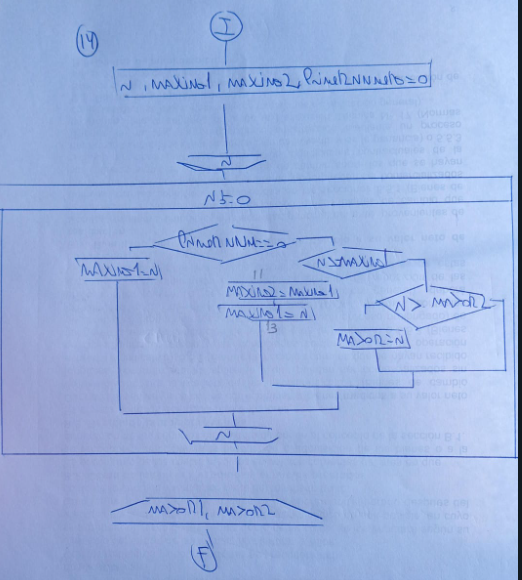 14
I
N, MAXIMO1, MAXIMO2, PRIMERNUMERO=0
N
N!=0
PRIMERNUM==0
N>MAXIMO1
MAXIMO1=N
MAXIMO2=MAXIMO1
MAXIMO1=N
N> MAYOR2
MAYOR=N
N
MAYOR1, MAYOR2
F